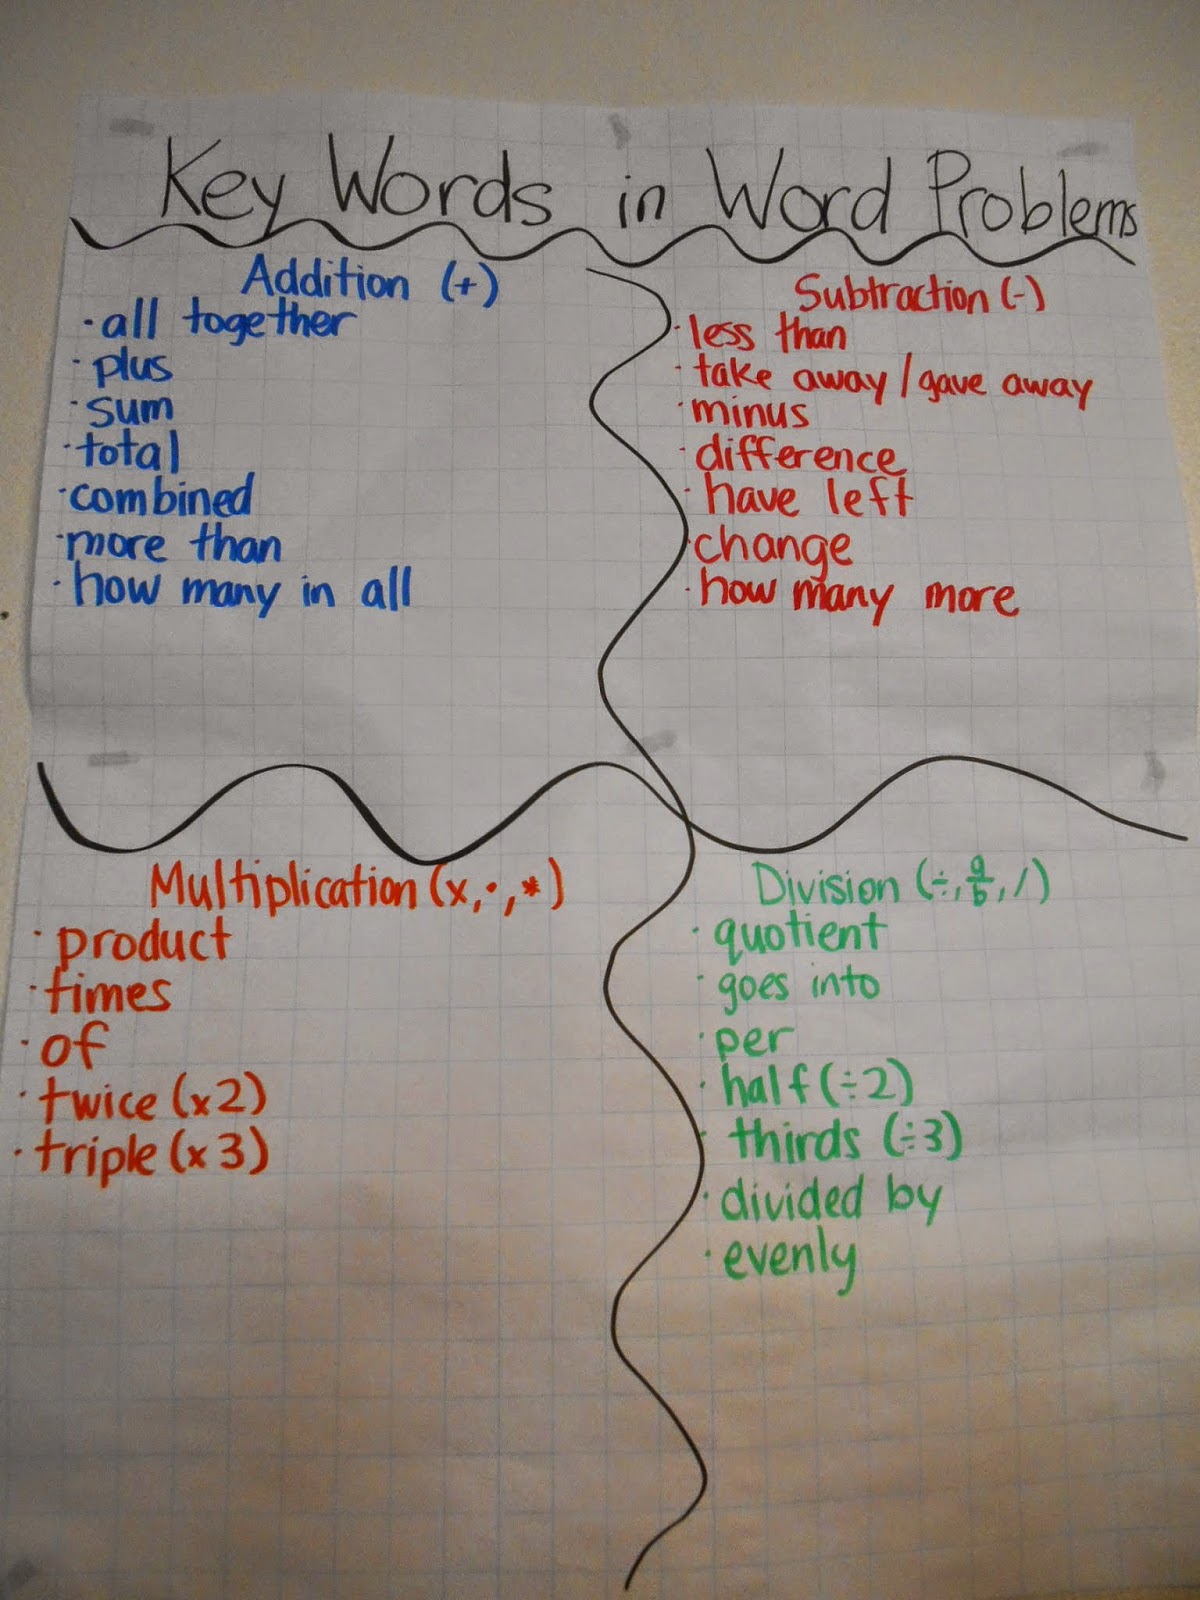 Key Words in Word Problems
Addition (+)
· all together
· plus
· sum
· total
· combined
· more than
· how many in all
Subtraction (-)
· less than
· take away / gave away
· minus
· difference
· have left
· change
· how many more
Multiplication (x, ·, *)
· product
· times
· of
· twice (x2)
· triple (x3)
Division (÷, a/b, /)
· quotient
· goes into
· per
· half (÷2)
· thirds (÷3)
· divided by
· evenly